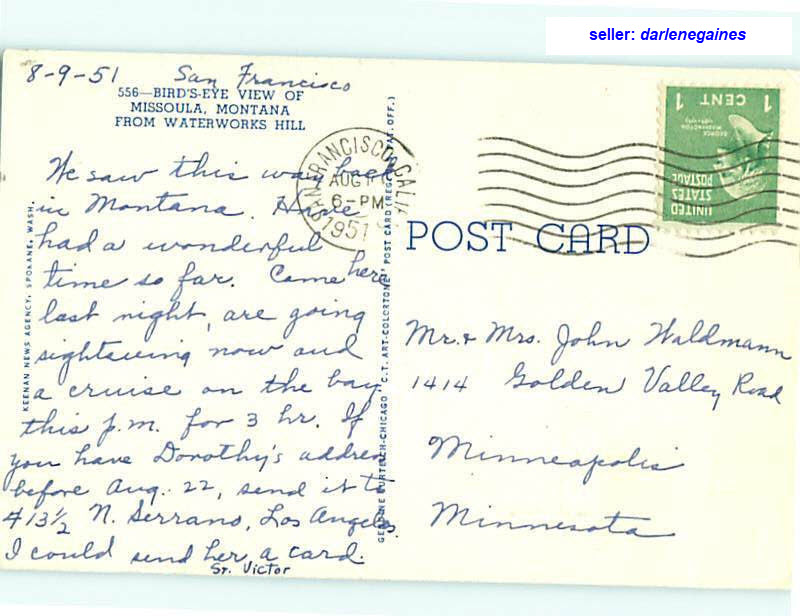 seller: darlenegaines
8-9-51 San Francisco
556—BIRD'S-EYE VIEW OF
MISSOULA, MONTANA
FROM WATERWORKS HILL
We saw this way back
in Montana. Have
had a wonderful
time so far. Came here
last night, are going
sightseeing now and
a cruise on the bay
this p.m. for 3 hr. If
you have Dorothy's address
before Aug. 22, send it to
413½ N. Serrano, Los Angeles.
I could send her a card.
St. Victor
KEENAN NEWS AGENCY, SPOKANE, WASH.
GENUINE CURTEICH-CHICAGO "C.T. ART-COLORTONE" POST CARD (REG. U.S. PAT. OFF.)
SAN FRANCISCO, CALIF.
AUG
6-PM
1951
1 CENT 1
GEORGE WASHINGTON
UNITED
STATES
POSTAGE
POST CARD
Mr. & Mrs. John Waldmann
1414 Golden Valley Road
Minneapolis
Minnesota